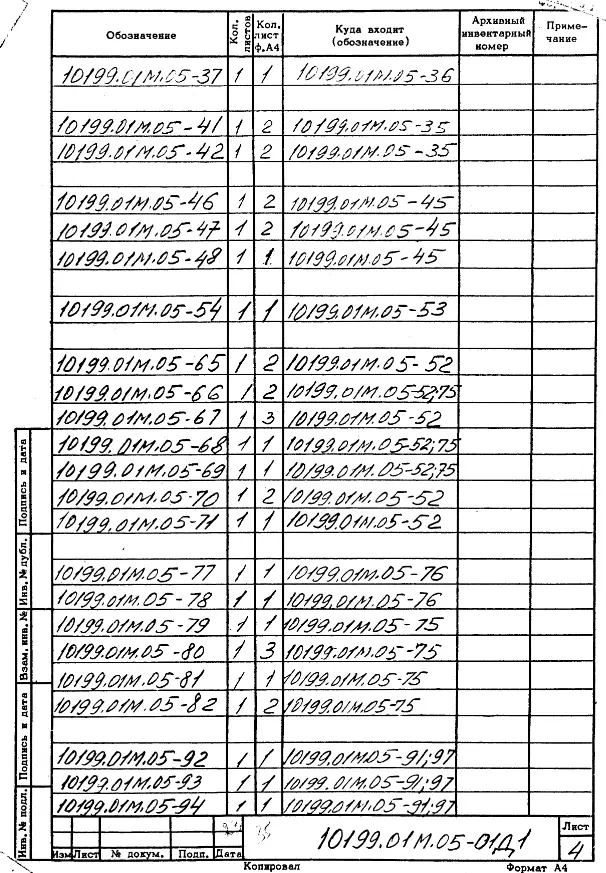 Обозначение Кол. листов Кол. лист ф.А4 Куда входит (обозначение) Архивный инвентарный номер Приме-чание
10199.01М.05-37 1 1 10199.01М.05-36
10199.01М.05-41 1 2 10199.01М.05-35
10199.01М.05-42 1 2 10199.01М.05-35
10199.01М.05-46 1 2 10199.01М.05-45
10199.01М.05-47 1 2 10199.01М.05-45
10199.01М.05-48 1 1 10199.01М.05-45
10199.01М.05-54 1 1 10199.01М.05-53
10199.01М.05-65 1 2 10199.01М.05-52
10199.01М.05-66 1 2 10199.01М.05-52;75
10199.01М.05-67 1 3 10199.01М.05-52
10199.01М.05-68 1 1 10199.01М.05-52;75
10199.01М.05-69 1 1 10199.01М.05-52;75
10199.01М.05-70 1 2 10199.01М.05-52
10199.01М.05-71 1 1 10199.01М.05-52
10199.01М.05-77 1 1 10199.01М.05-76
10199.01М.05-78 1 1 10199.01М.05-76
10199.01М.05-79 1 1 10199.01М.05-75
10199.01М.05-80 1 3 10199.01М.05-75
10199.01М.05-81 1 1 10199.01М.05-75
10199.01М.05-82 1 2 10199.01М.05-75
10199.01М.05-92 1 1 10199.01М.05-91;97
10199.01М.05-93 1 1 10199.01М.05-91;97
10199.01М.05-94 1 1 10199.01М.05-91;97
Подпись и дата
Инв. № дубл.
Взам. инв. №
Подпись и дата
Инв. № подл.
Изм Лист № докум. Подп. Дата
10199.01М.05-01Д1
Лист
4
Копировал Формат А4